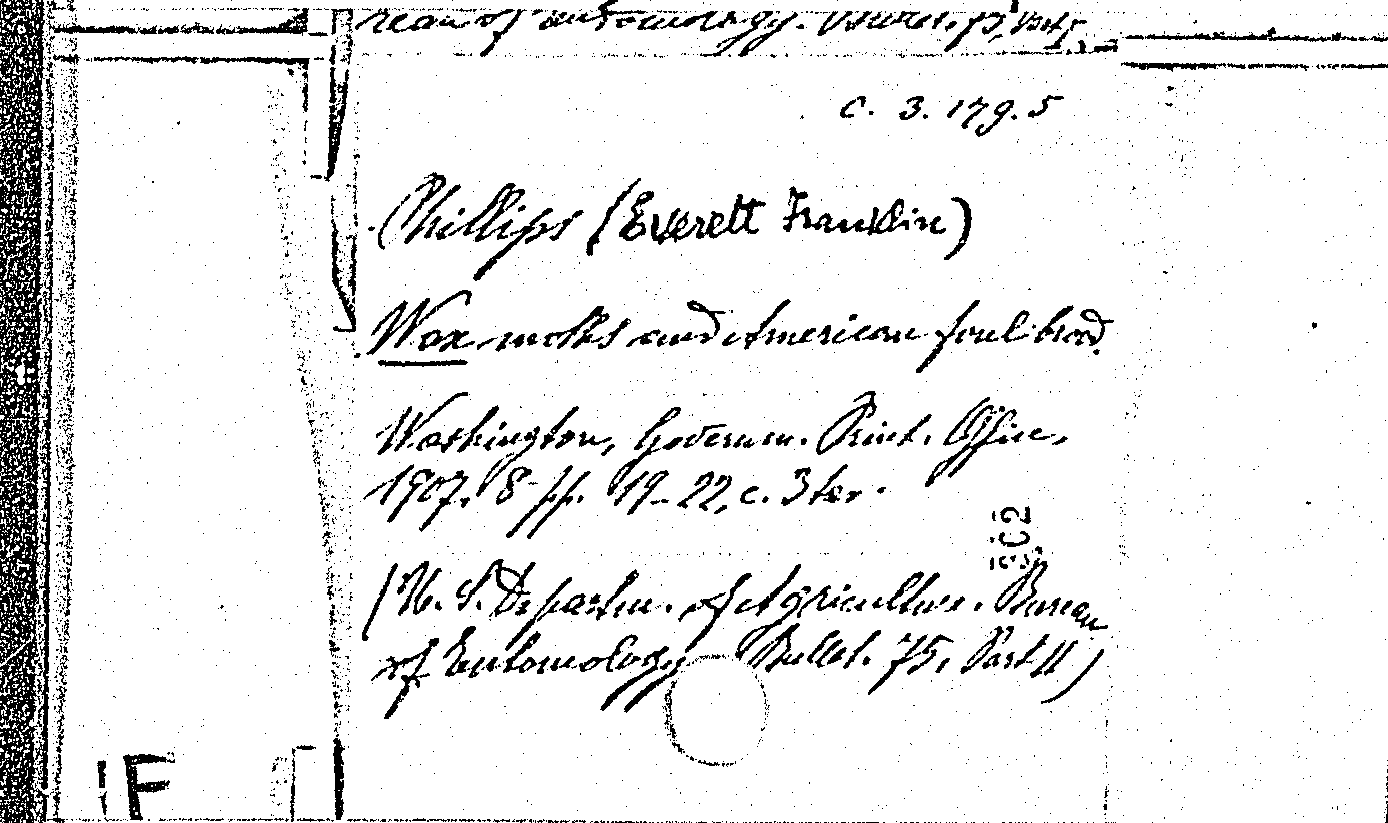 reau of entomology. Bullet. 75, Part
C. 3. 179. 5
Phillips (Everett Franklin)
Wax moths and American foul brood.
Washington, Governm. Print. Office,
1907. 8° pp. 19-22, c. 3 ter.
(U. S. Departm. of Agriculture. Bureau
of Entomology Bullet. 75, Part II)
302
IF